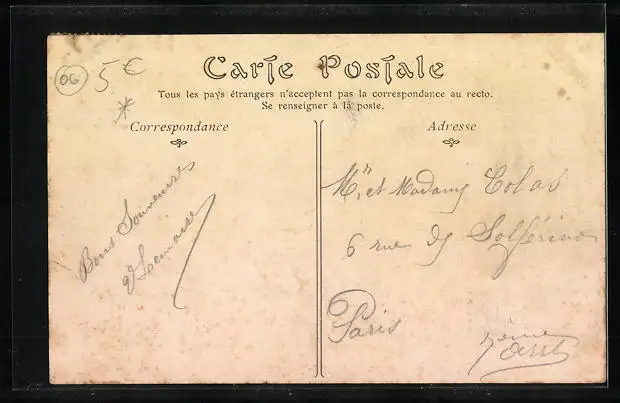 06 5€
*
Carte Postale
Tous les pays étrangers n'acceptent pas la correspondance au recto.
Se renseigner à la poste.
Correspondance
Bons Souvenirs
Lemaire
Adresse
Mr, et Madame Colas
6 rue de Solférino
Paris
7ème
Arrt